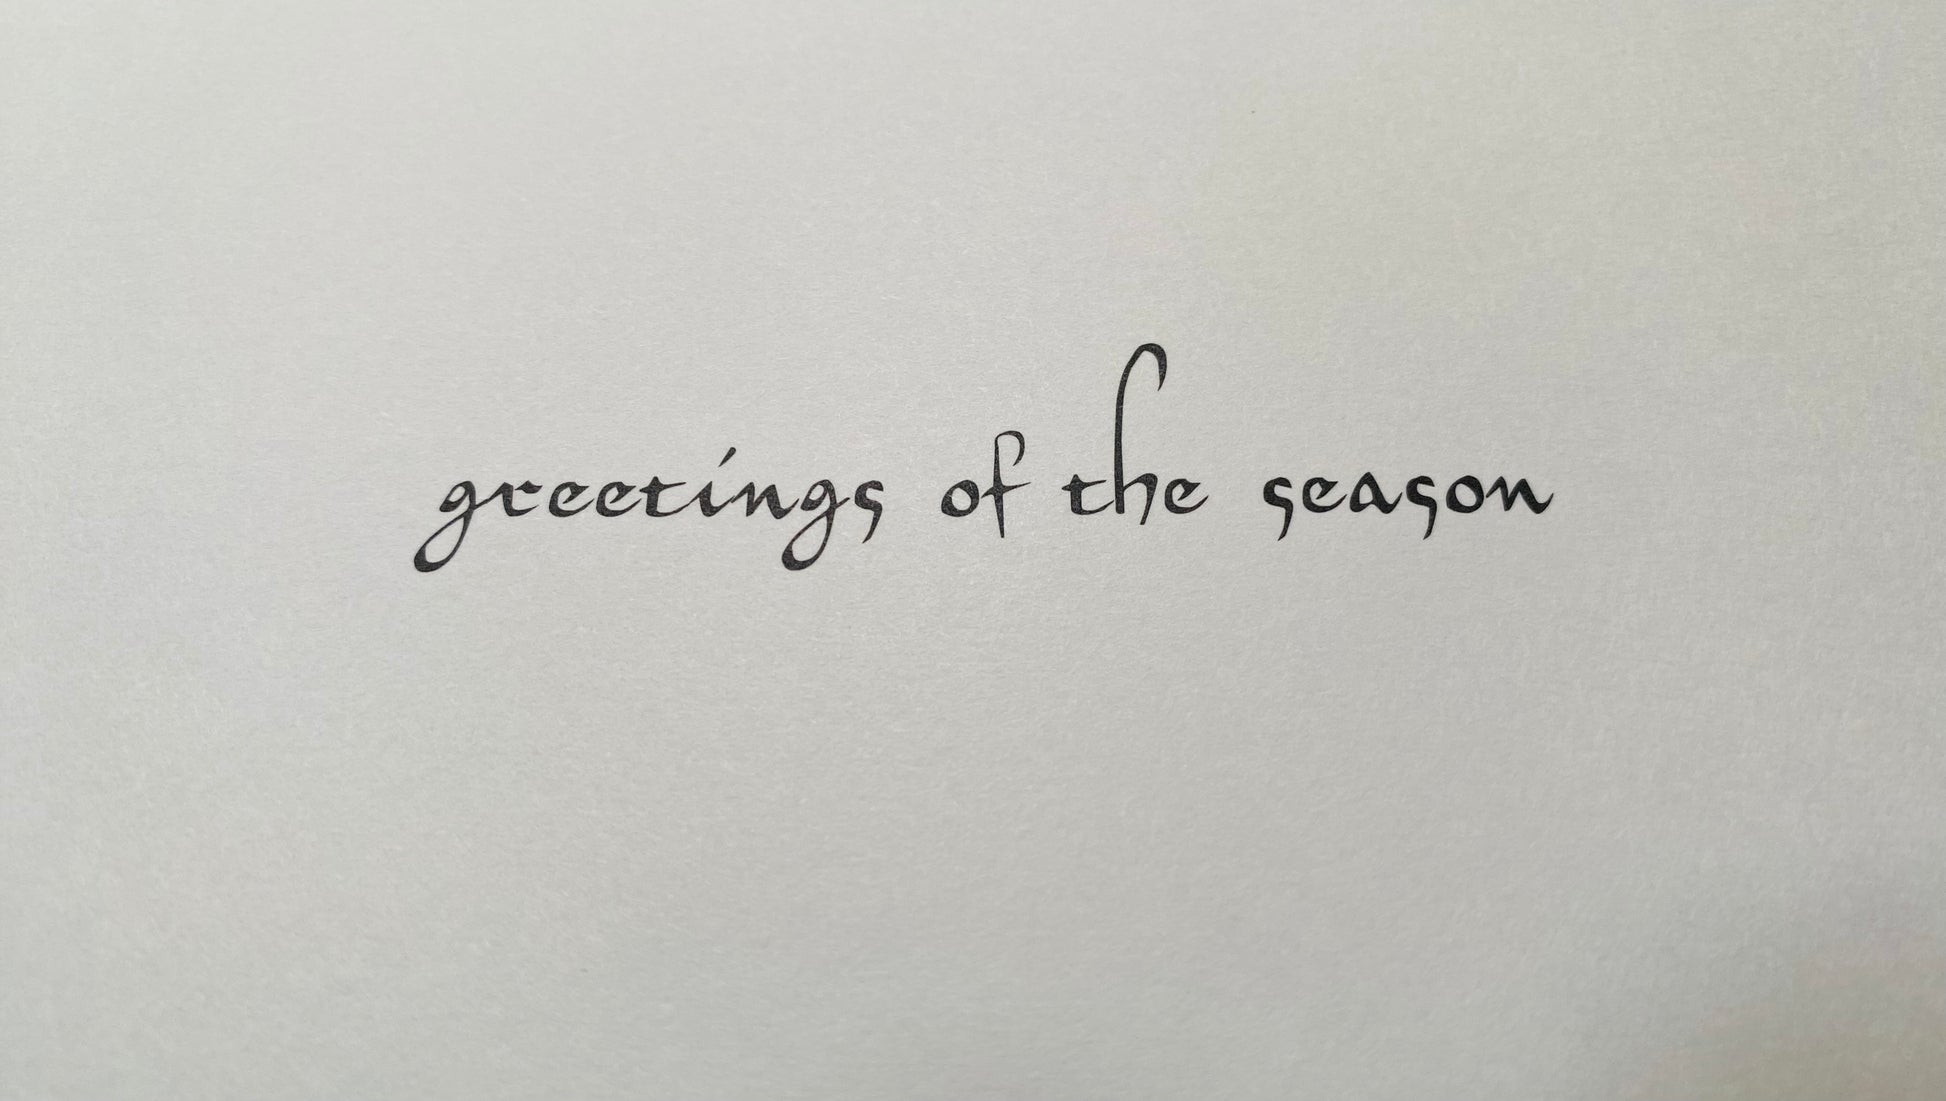 greetings of the season